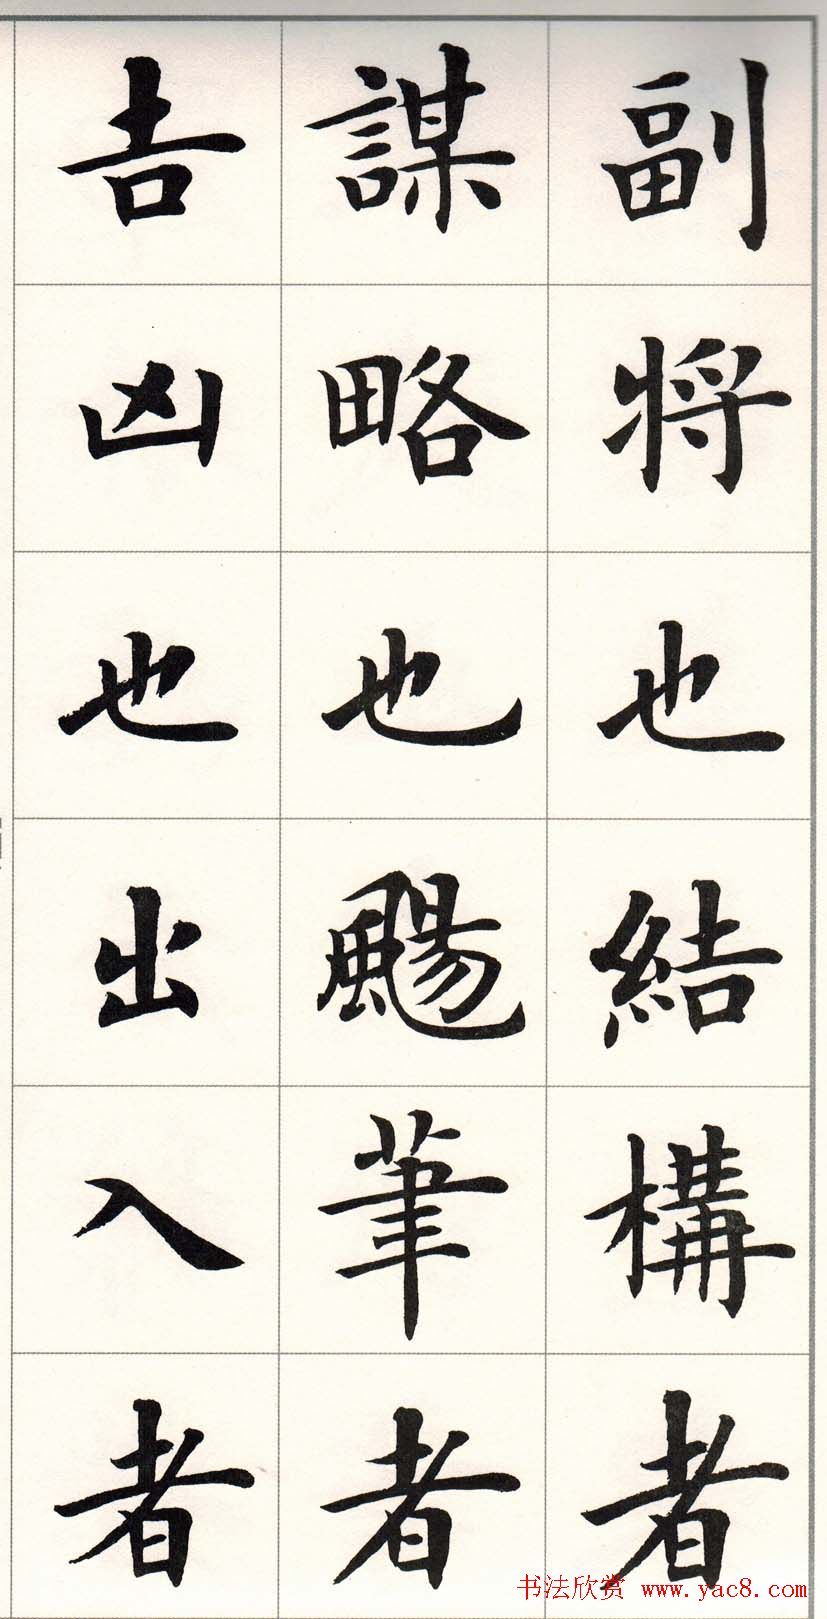 副将也結構者
謀略也颺筆者
吉凶也出入者
书法欣赏 www.yac8.com